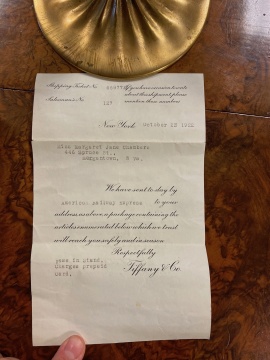 Shipping Ticket No. If you have occasion to write
about this shipment please
Salesman's No. 127 mention these numbers
New York October 13 1922
Miss Margaret Jane Chambers
Spruce St.,
We have sent to day by
American Railway Express to your
address as above a package containing the
articles enumerated below which we trust
will reach you safely and in season
Respectfully
Tiffany & Co.
Charges prepaid
Card.